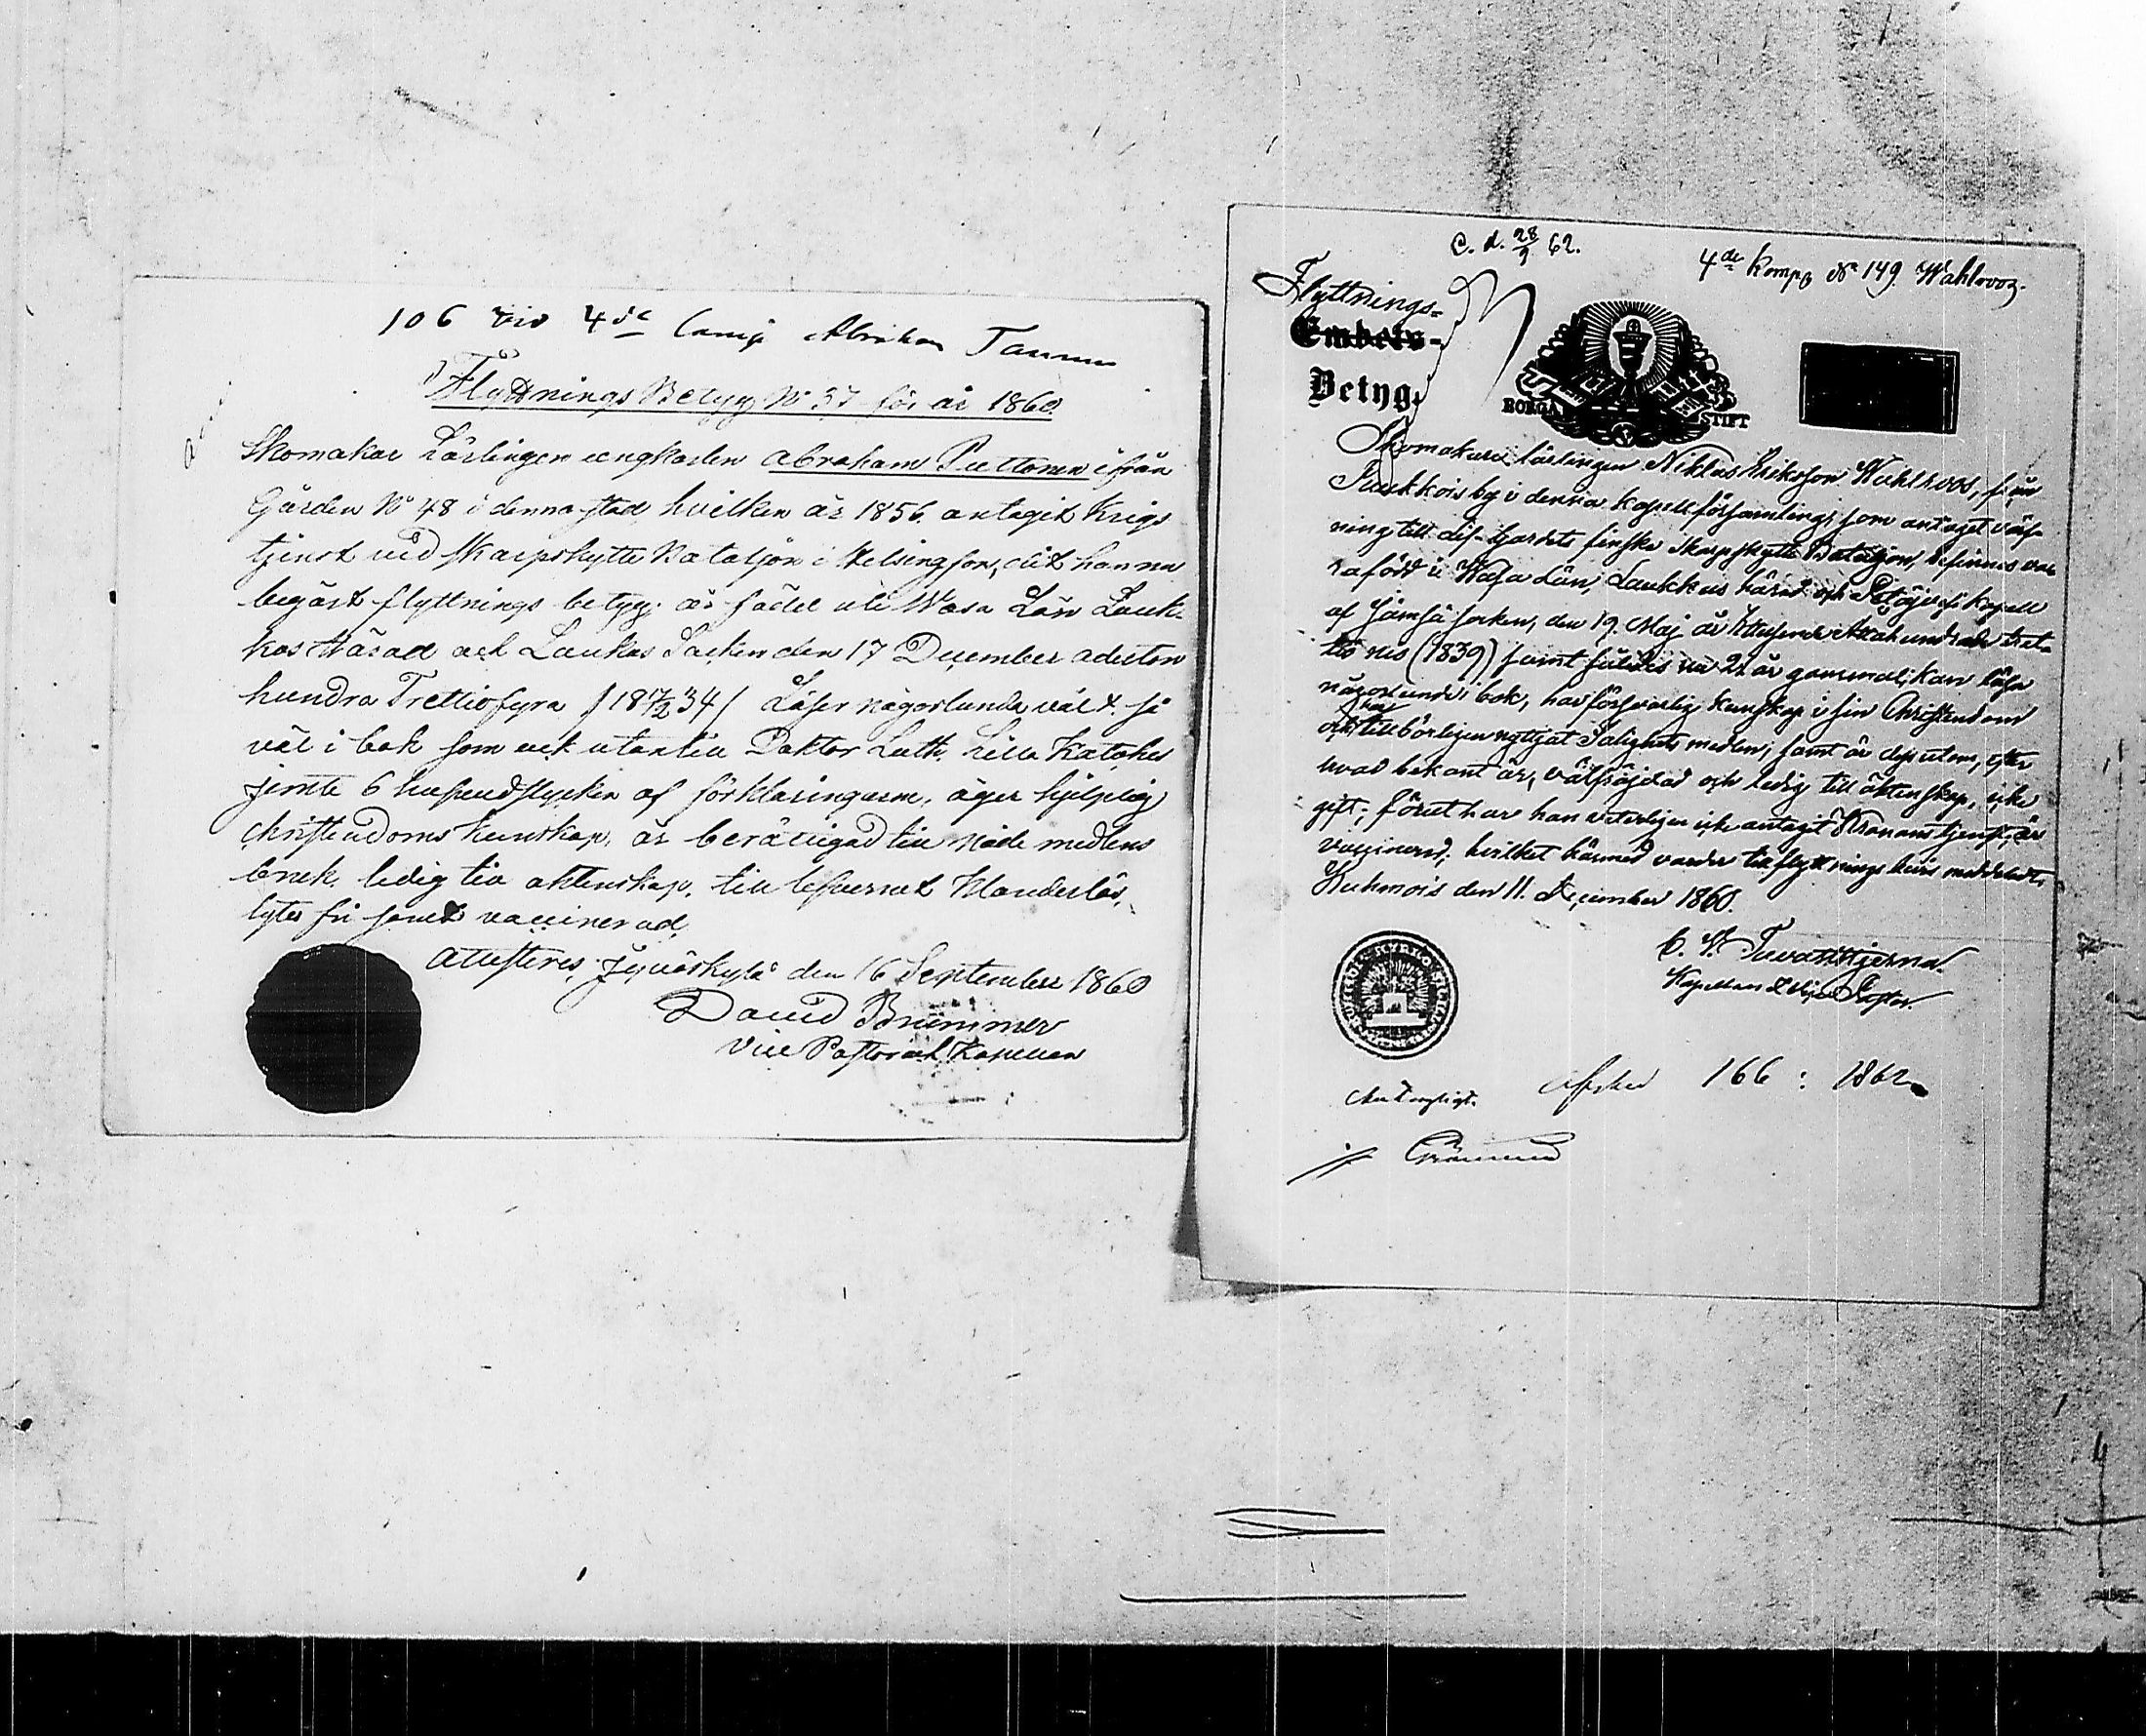 106 vid 4de Comp Abraham
Flyttnings Betyg No 37 för år 1860.
Skomakar Lärlingen ungkarlen Abraham Puttonen ifrån
Gården No 48 i denna stad hvilken år 1856 antagit Krigs
tjenst vid Skarpskytte Bataljon i Helsingfors, dit han nu
begärt flyttnings betyg; är född uti Wasa Län Lauk-
kas Härad och Laukas Sochen den 17 December aderton
hundra Trettiofyra /18 17/12 34/ Läser någorlunda väl så
väl i bok som ock utantill Doktor Luth. Lilla Katekes
jemte 6 hufvudstycken af förklaringarne, äger hjelplig
Christendoms kunskap, är berättigad till Nåde medlens
bruk, ledig till äktenskap, till lefvernet klanderlös,
lytes fri samt vaccinerad,
Attesteras, Jyväskylä den 16 September 1860
David Brummer
Vice Pastor och Kapellan
C. d. 28/9 62.
4de Komp No 149 Wahlroos.
Flyttnings-
Embets-
Betyg.
BORGÅ STIFT
Skomakare lärlingen Niklas Eriksson Wahlroos, från
Paukkois by i denna Kapellförsamling, som antaget värf-
ning till Lif-Gardets finska Skarpskytte Bataljon, befinnes va-
ra född i Wasa Län, Laukkas härad och Petäjävesi kapell
af Jämsä socken, den 19 Maj år Ettusende Åttahundrade tret-
tio nio (1839) samt således nu 21 år gammal; kan läsa
någorlunda i bok, har försvarlig kunskap i sin Christendom
och har tillbörligen nyttjat Salighets medlen, samt är dessutom, efter
hvad bekant är, välfrejdad och ledig till äktenskap, icke
gift; förut har han veterligen icke antagit Kronans tjenst, är
vaccinerad; hvilket härmed varder till flyttnings bevis meddeladt,
Kuhmois den 11. December 1860.
Kapellan & Vice Pastor.
Afsked 166 : 1862